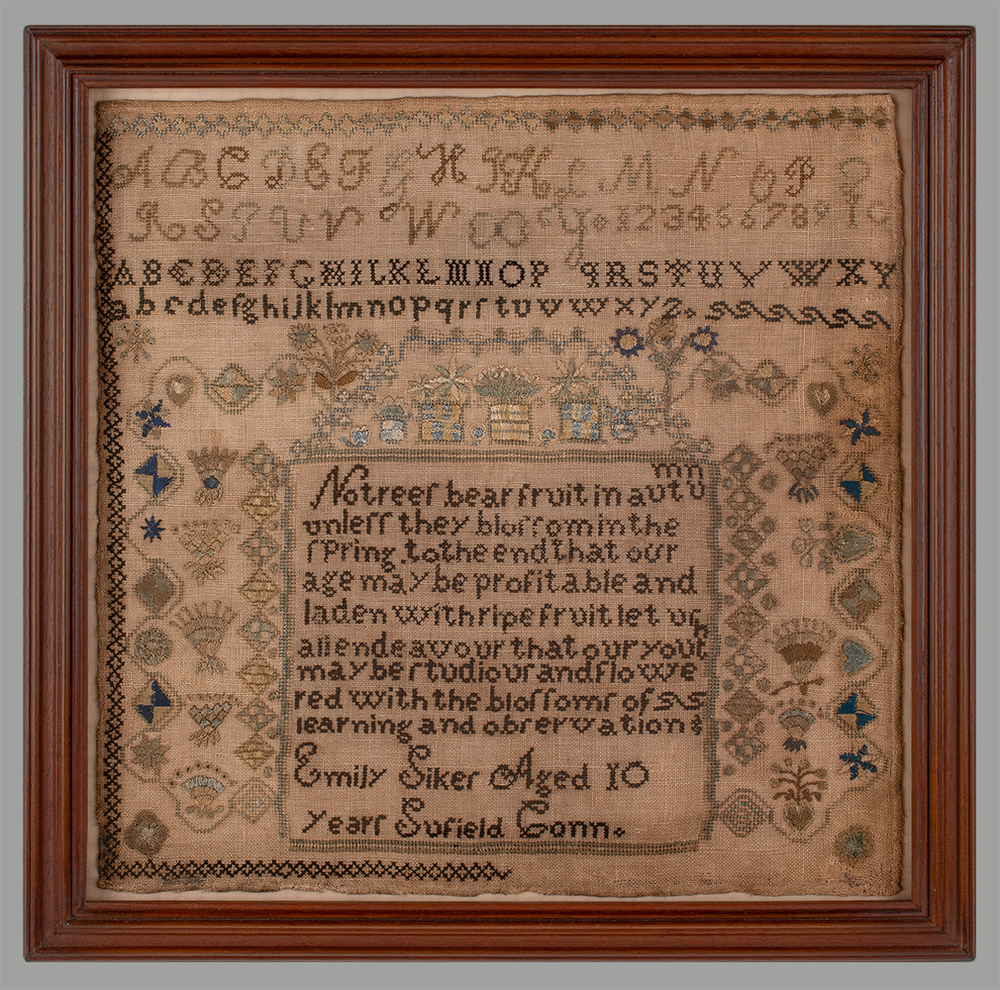 A B C D E F G H I K L M N O P Q
R S T U V W X Y 1 2 3 4 5 6 7 8 9 1 0
A B C D E F G H I L K L M N O P q R S T U V W X Y
a b c d e f g h i j k l m n o p q r ſ t u v w x y z
No treeſ bear fruit in autumn
unleſſ they bloſſom in the
ſpring to the end that our
age may be profitable and
laden with ripe fruit let uſ
all endeavour that our youth
may be ſtudiouſ and flowe
red with the bloſſomſ of
learning and obſervation &
Emily Siker Aged 10
yearſ Sufield Conn.